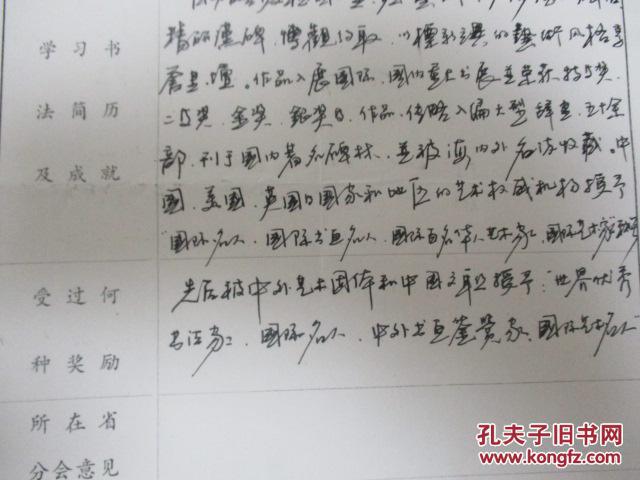 学习书
法简历
及成就
精研唐碑,博观约取,以标新立异的艺术风格享
誉书坛。作品入展国际、国内重大书展并荣获特等奖、
二等奖、金奖、银奖等,作品、传略入编大型辞书五十余
部,刊于国内著名碑林,并被海内外名流收藏。中
国、美国、英国等国家和地区的艺术权威机构授予
"国际名人、国际书画名人、国际百名华人艺术家、国际艺术家
受过何
种奖励
先后被中外艺术团体和中国文联授予:"世界优秀
书法家"、国际名人、中外书画鉴赏家、国际艺术名人"
所在省
分会意见
孔夫子旧书网
www.kongfz.com